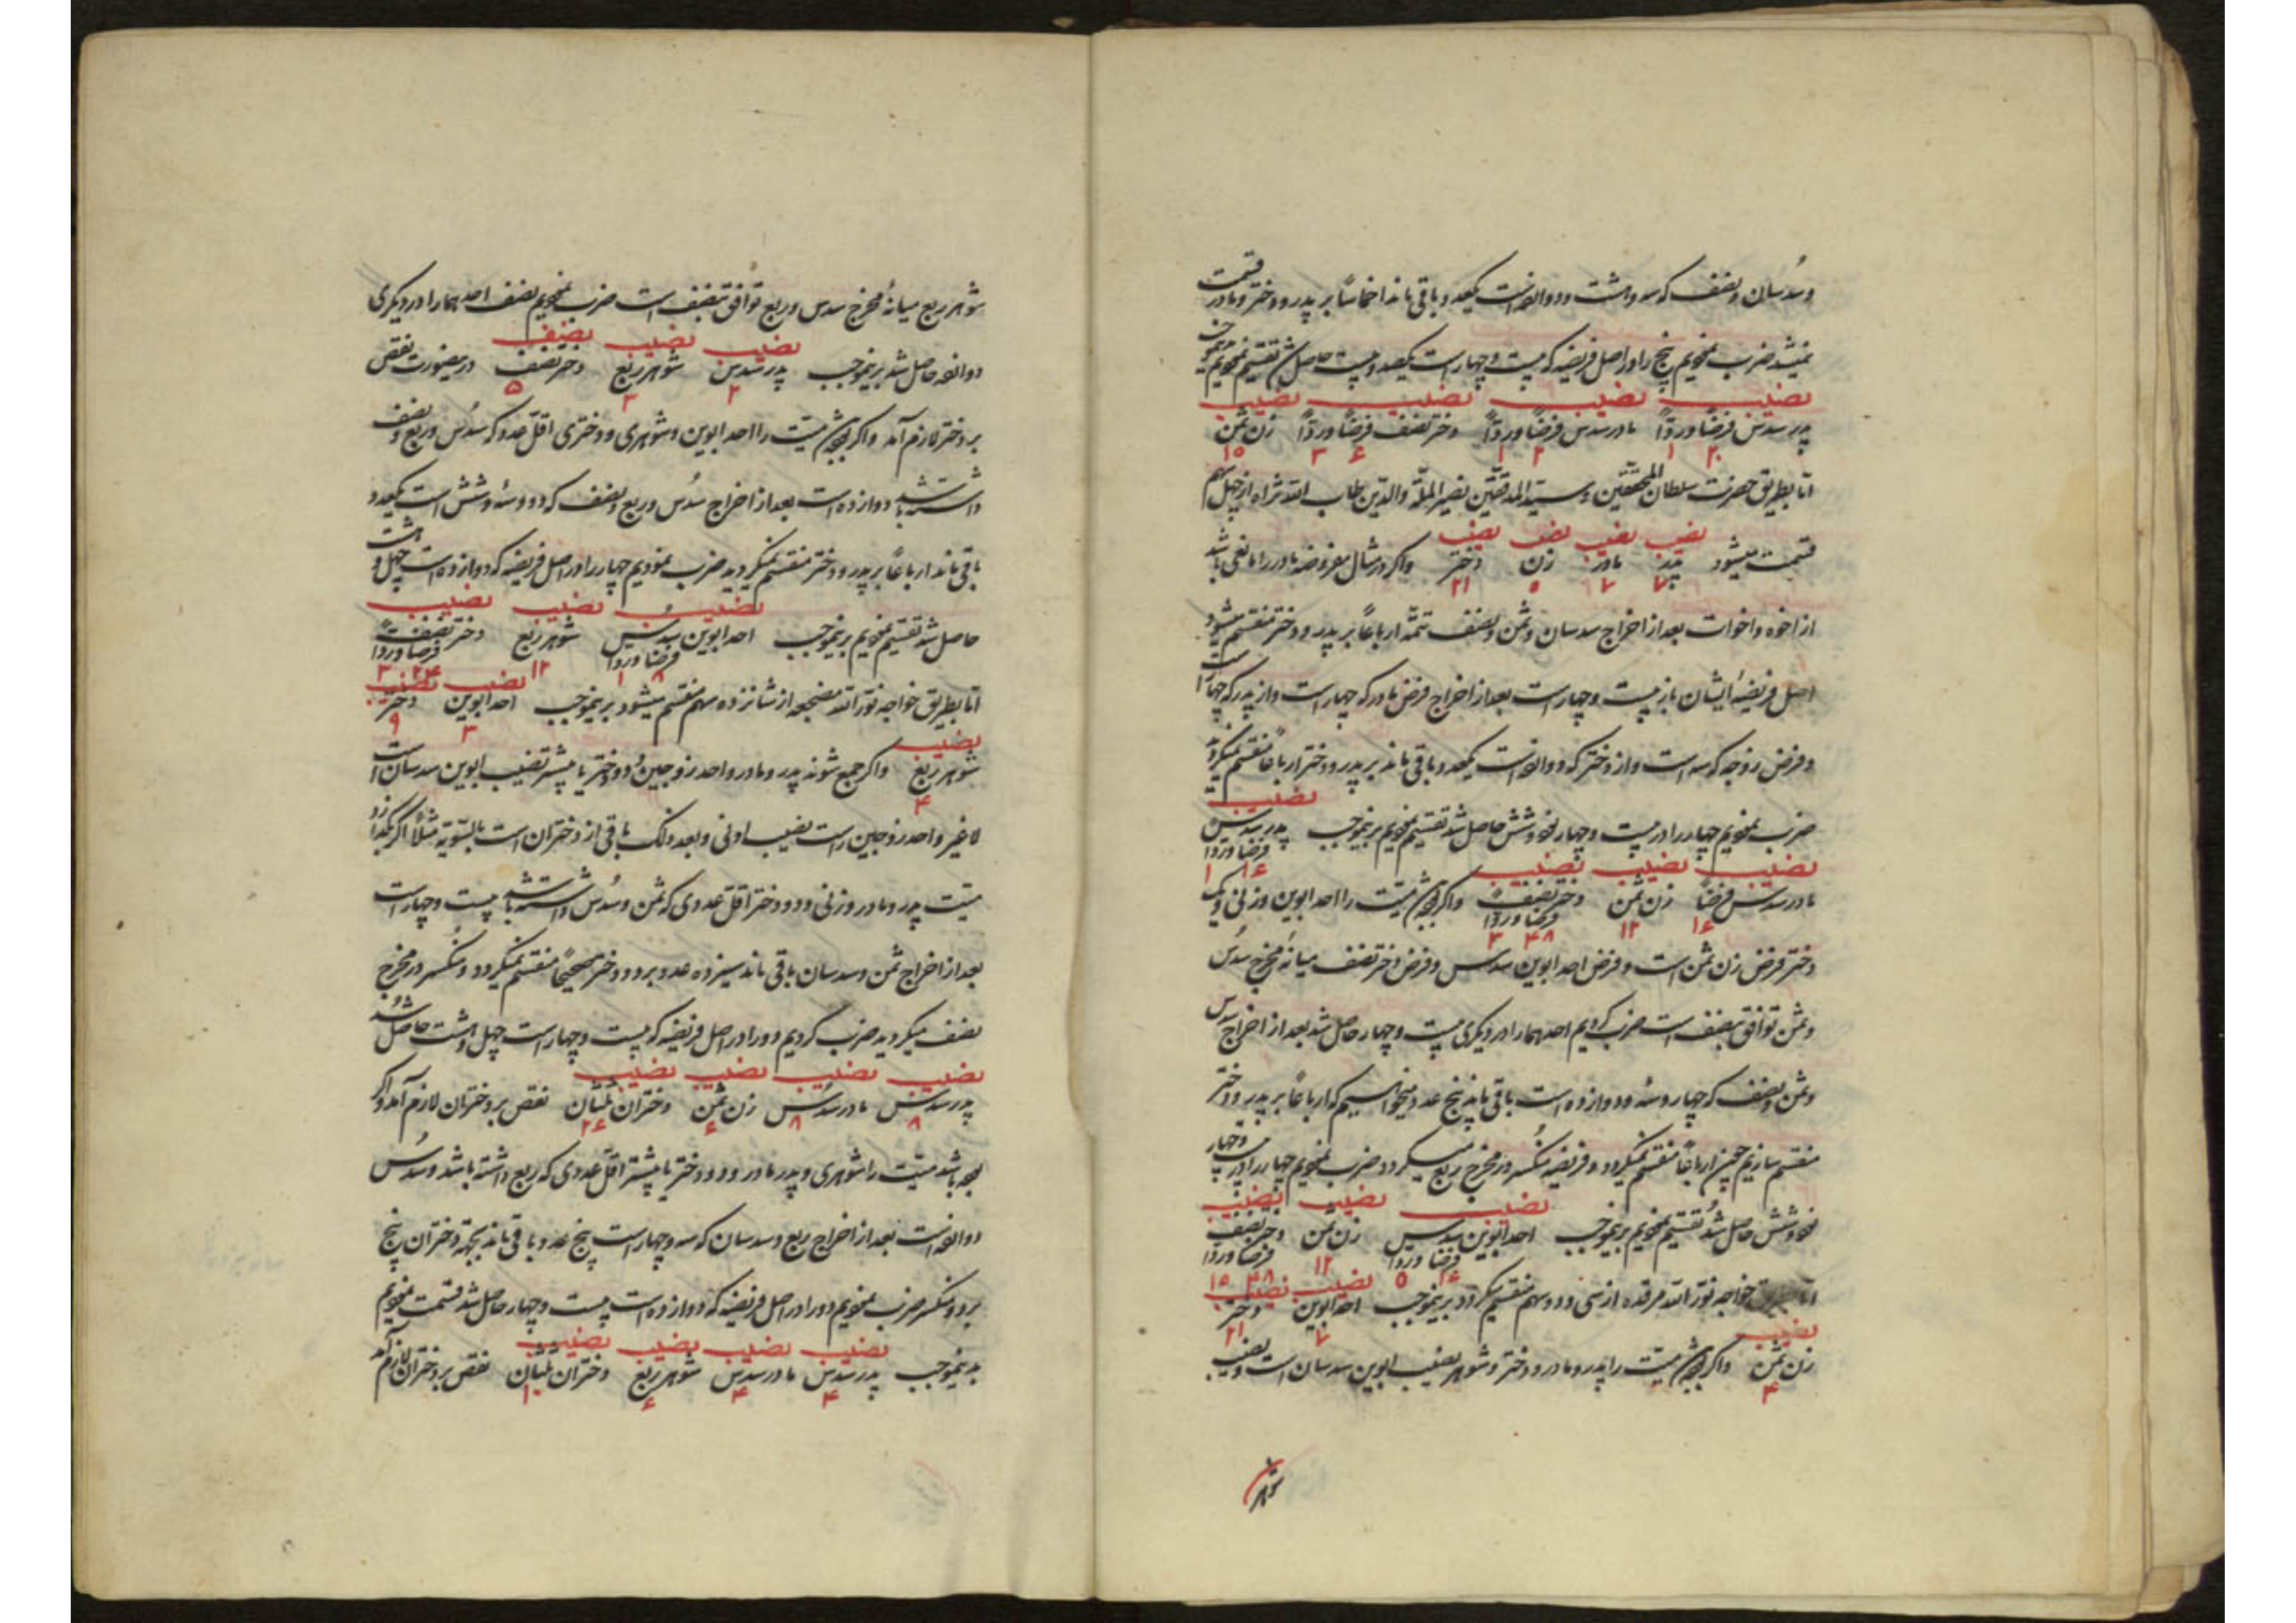 وسدسان و نصف که سه و هشت و دوازده است یکعدد باقی ماند اخماسا بر پدر و دختر و مادر قسمت
نمیشد ضرب نمودیم پنج را در اصل فریضه که بیست و چهار است یکصد و بیست حاصل شد تقسیم نمودیم
نصیب نصیب نصیب نصیب
پدر سدس فرضاً و ردّاً مادر سدس فرضاً و ردّاً دختر نصف فرضاً و ردّاً زن ثمن
۲۰ ۱ ۲۰ ۱ ۶۰ ۳ ۱۵
امّا بطریق حضرت سلطان المحققین و سیّد المدققین نصیر الملّة والدّین طاب الله ثراه از چهل سهم
نصیب نصیب نصیب نصیب
قسمت میشود پدر مادر زن دختر واکر در مثال مفروضه مادر را مانعی باشد
۷ ۷ ۵ ۲۱
از اخوه و اخوات بعد از اخراج سدسان و ثمن و نصف تتمّه ارباعاً بر پدر و دختر منقسم میشود
اصل فریضهٔ ایشان باز بیست و چهار است بعد از اخراج فرض مادر که چهار است و از پدر که چهار است
و فرض زوجه که سه است و از دختر که دوازده است یکعدد باقی ماند بر پدر و دختر ارباعاً منقسم نمیکردید
نصیب
ضرب نمودیم چهار را در بیست و چهار نود و شش حاصل شد تقسیم نمودیم برینموجب پدر سدس
فرضاً و ردّاً
۱۶ ۱
نصیب نصیب نصیب
مادر سدس فرضاً زن ثمن دختر نصف واکر بوده باشد میّت را احد ابوین و زنی و یک
فرضاً و ردّاً
۱۶ ۱۲ ۴۸ ۳
دختر فرض زن ثمن است و فرض احد ابوین سدس و فرض دختر نصف میانهٔ مخرج سدس
و ثمن توافق بنصف است ضرب کردیم احدهما را در دیکری بیست و چهار حاصل شد بعد از اخراج سدس
و ثمن و نصف که چهار و سه و دوازده است باقی ماند پنج عدد میخواسیم که ارباعاً بر پدر و دختر
منقسم سازیم چون ارباعاً منقسم نمیکردد و فریضه منکسر در مخرج ربع میکردد ضرب نمودیم چهار را در بیست و چهار
نصیب نصیب نصیب
نود و شش حاصل شد تقسیم نمودیم برینموجب احد ابوین سدس زن ثمن دختر نصف
فرضاً و ردّاً فرضاً و ردّاً
۱۶ ۵ ۱۲ ۴۸ ۱۵
نصیب نصیب
امّا بطریق خواجه نوّر الله مرقده از سی و دو سهم منقسم میکردد برینموجب احد ابوین دختر
۷ ۲۱
نصیب
زن ثمن واکر بوده باشد میّت را پدر و مادر و دختر و شوهر نصیب ابوین سدسان است و نصیب
۴
شوهر
شوهر ربع میانهٔ مخرج سدس و ربع توافق بنصف است ضرب نمودیم نصف احدهما را در دیکری
نصیب نصیب نصیب
دوازده حاصل شد برینموجب پدر سدس شوهر ربع دختر نصف درینصورت نقص
۲ ۳ ۵
بر دختر لازم آمد واکر بوده باشد میّت را احد ابوین و شوهری و دختری اقلّ عددی که سدس و ربع و نصف
داشته باشد دوازده است بعد از اخراج سدس و ربع و نصف که دو و سه و شش است یکعدد
باقی ماند ارباعاً بر پدر و دختر منقسم نمیکردید ضرب نمودیم چهار را در اصل فریضه که دوازده است چهل و هشت
نصیب نصیب نصیب
حاصل شد تقسیم نمودیم برینموجب احد ابوین سدس شوهر ربع دختر نصف
فرضاً و ردّاً فرضاً و ردّاً
۸ ۱ ۱۲ ۲۴ ۳
نصیب نصیب
امّا بطریق خواجه نوّر الله مضجعه از شانزده سهم منقسم میشود برینموجب احد ابوین دختر
۳ ۹
نصیب
شوهر ربع واکر جمع شوند پدر و مادر و احد زوجین و دو دختر یا بیشتر نصیب ابوین سدسان است
۴
لا غیر و احد زوجین راست نصیب ادنی و بعد ذلک باقی از دختران است بالسّویّه مثلاً اکر بکذارد
میّت پدر و مادر و زنی و دو دختر اقلّ عددی که ثمن و سدس داشته باشد بیست و چهار است
بعد از اخراج ثمن و سدسان باقی ماند سیزده عدد بر دو دختر صحیحاً منقسم نمیکردد و منکسر در مخرج
نصف میکردید ضرب کردیم دو را در اصل فریضه که بیست و چهار است چهل و هشت حاصل شد
نصیب نصیب نصیب نصیب
پدر سدس مادر سدس زن ثمن دختران ثلثان نقص بر دختران لازم آمد واکر
۸ ۸ ۶ ۲۶
بوده باشد میّت را شوهری و پدر و مادر و دو دختر یا بیشتر اقلّ عددی که ربع داشته باشد و سدس
دوازده است بعد از اخراج ربع و سدسان که سه و چهار است پنج عدد باقی ماند بجهة دختران پنج
بر دو منکسر ضرب نمودیم دو را در اصل فریضه که دوازده است بیست و چهار حاصل شد قسمت نمودیم
نصیب نصیب نصیب نصیب
بدینموجب پدر سدس مادر سدس شوهر ربع دختران ثلثان نقص بر دختران لازم آمد
۴ ۴ ۶ ۱۰